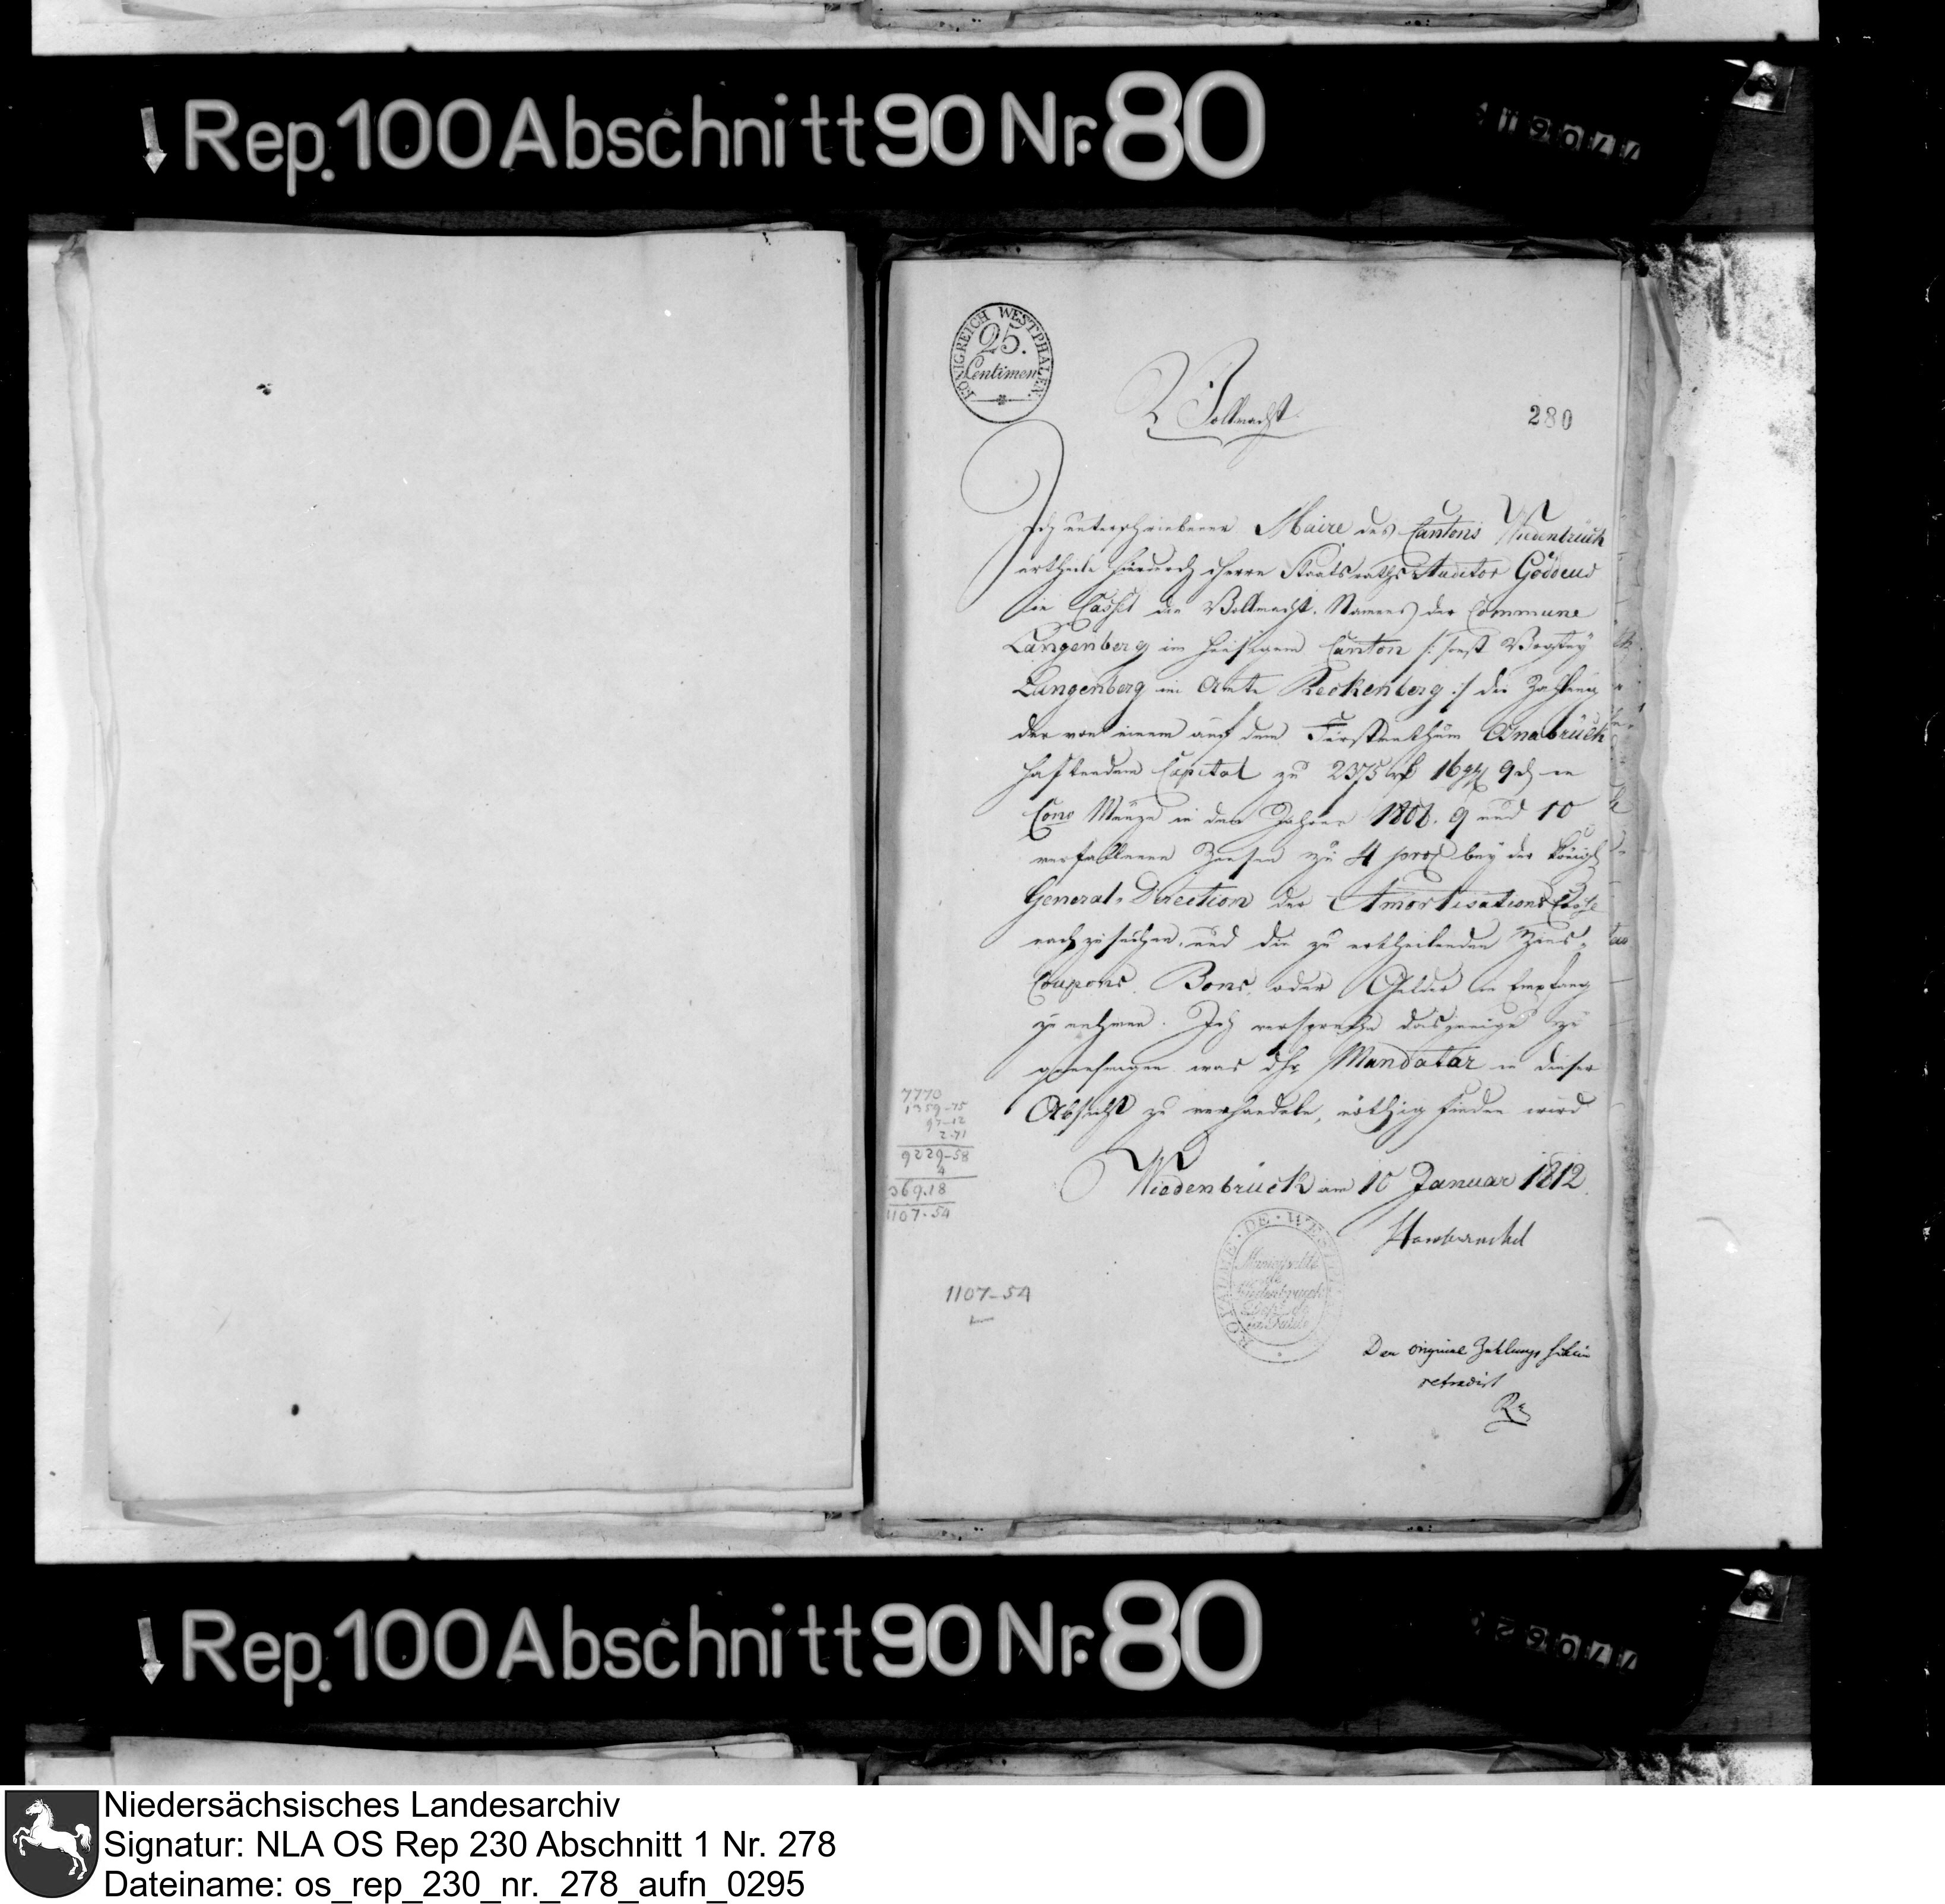 Rep. 100 Abschnitt 90 Nr. 80
KÖNIGREICH WESTPHALEN.
25.
Centimen
Vollmacht
280
Ich unterschriebener Maire des Cantons Wiedenbrück
ertheile hierdurch Herrn Staatsraths Auditor
in Cassel die Vollmacht, Namens der Commune
Langenberg im hiesigen Canton /: sonst Vogtey
Langenberg im Amte Reckenberg :/ die Zahlung
der von einem auf dem Fürstenthum Osnabrück
haftenden Capital zu 2375 rt 16 ggr 9 d in
Conv Münze in den Jahren 1808. 9 und 10
verfallenen Zinsen zu 4 proc bey der Königl
General-Direction der Amortisations Casse
nachzusuchen, und die zu ertheilenden Zins-
Coupons, Bons, oder Gelder in Empfang
zu nehmen. Ich verspreche dasjenige zu
genehmigen was Hr Mandatar in dieser
Absicht zu verhandeln, nöthig finden wird
7770
1359-75
97-12
2-71
9229-58
4
369.18
1107-54
Wiedenbrück am 10 Januar 1812.
1107-54
Den original Zahlungs
retradirt
Rep. 100 Abschnitt 90 Nr. 80
Niedersächsisches Landesarchiv
Signatur: NLA OS Rep 230 Abschnitt 1 Nr. 278
Dateiname: os_rep_230_nr._278_aufn_0295